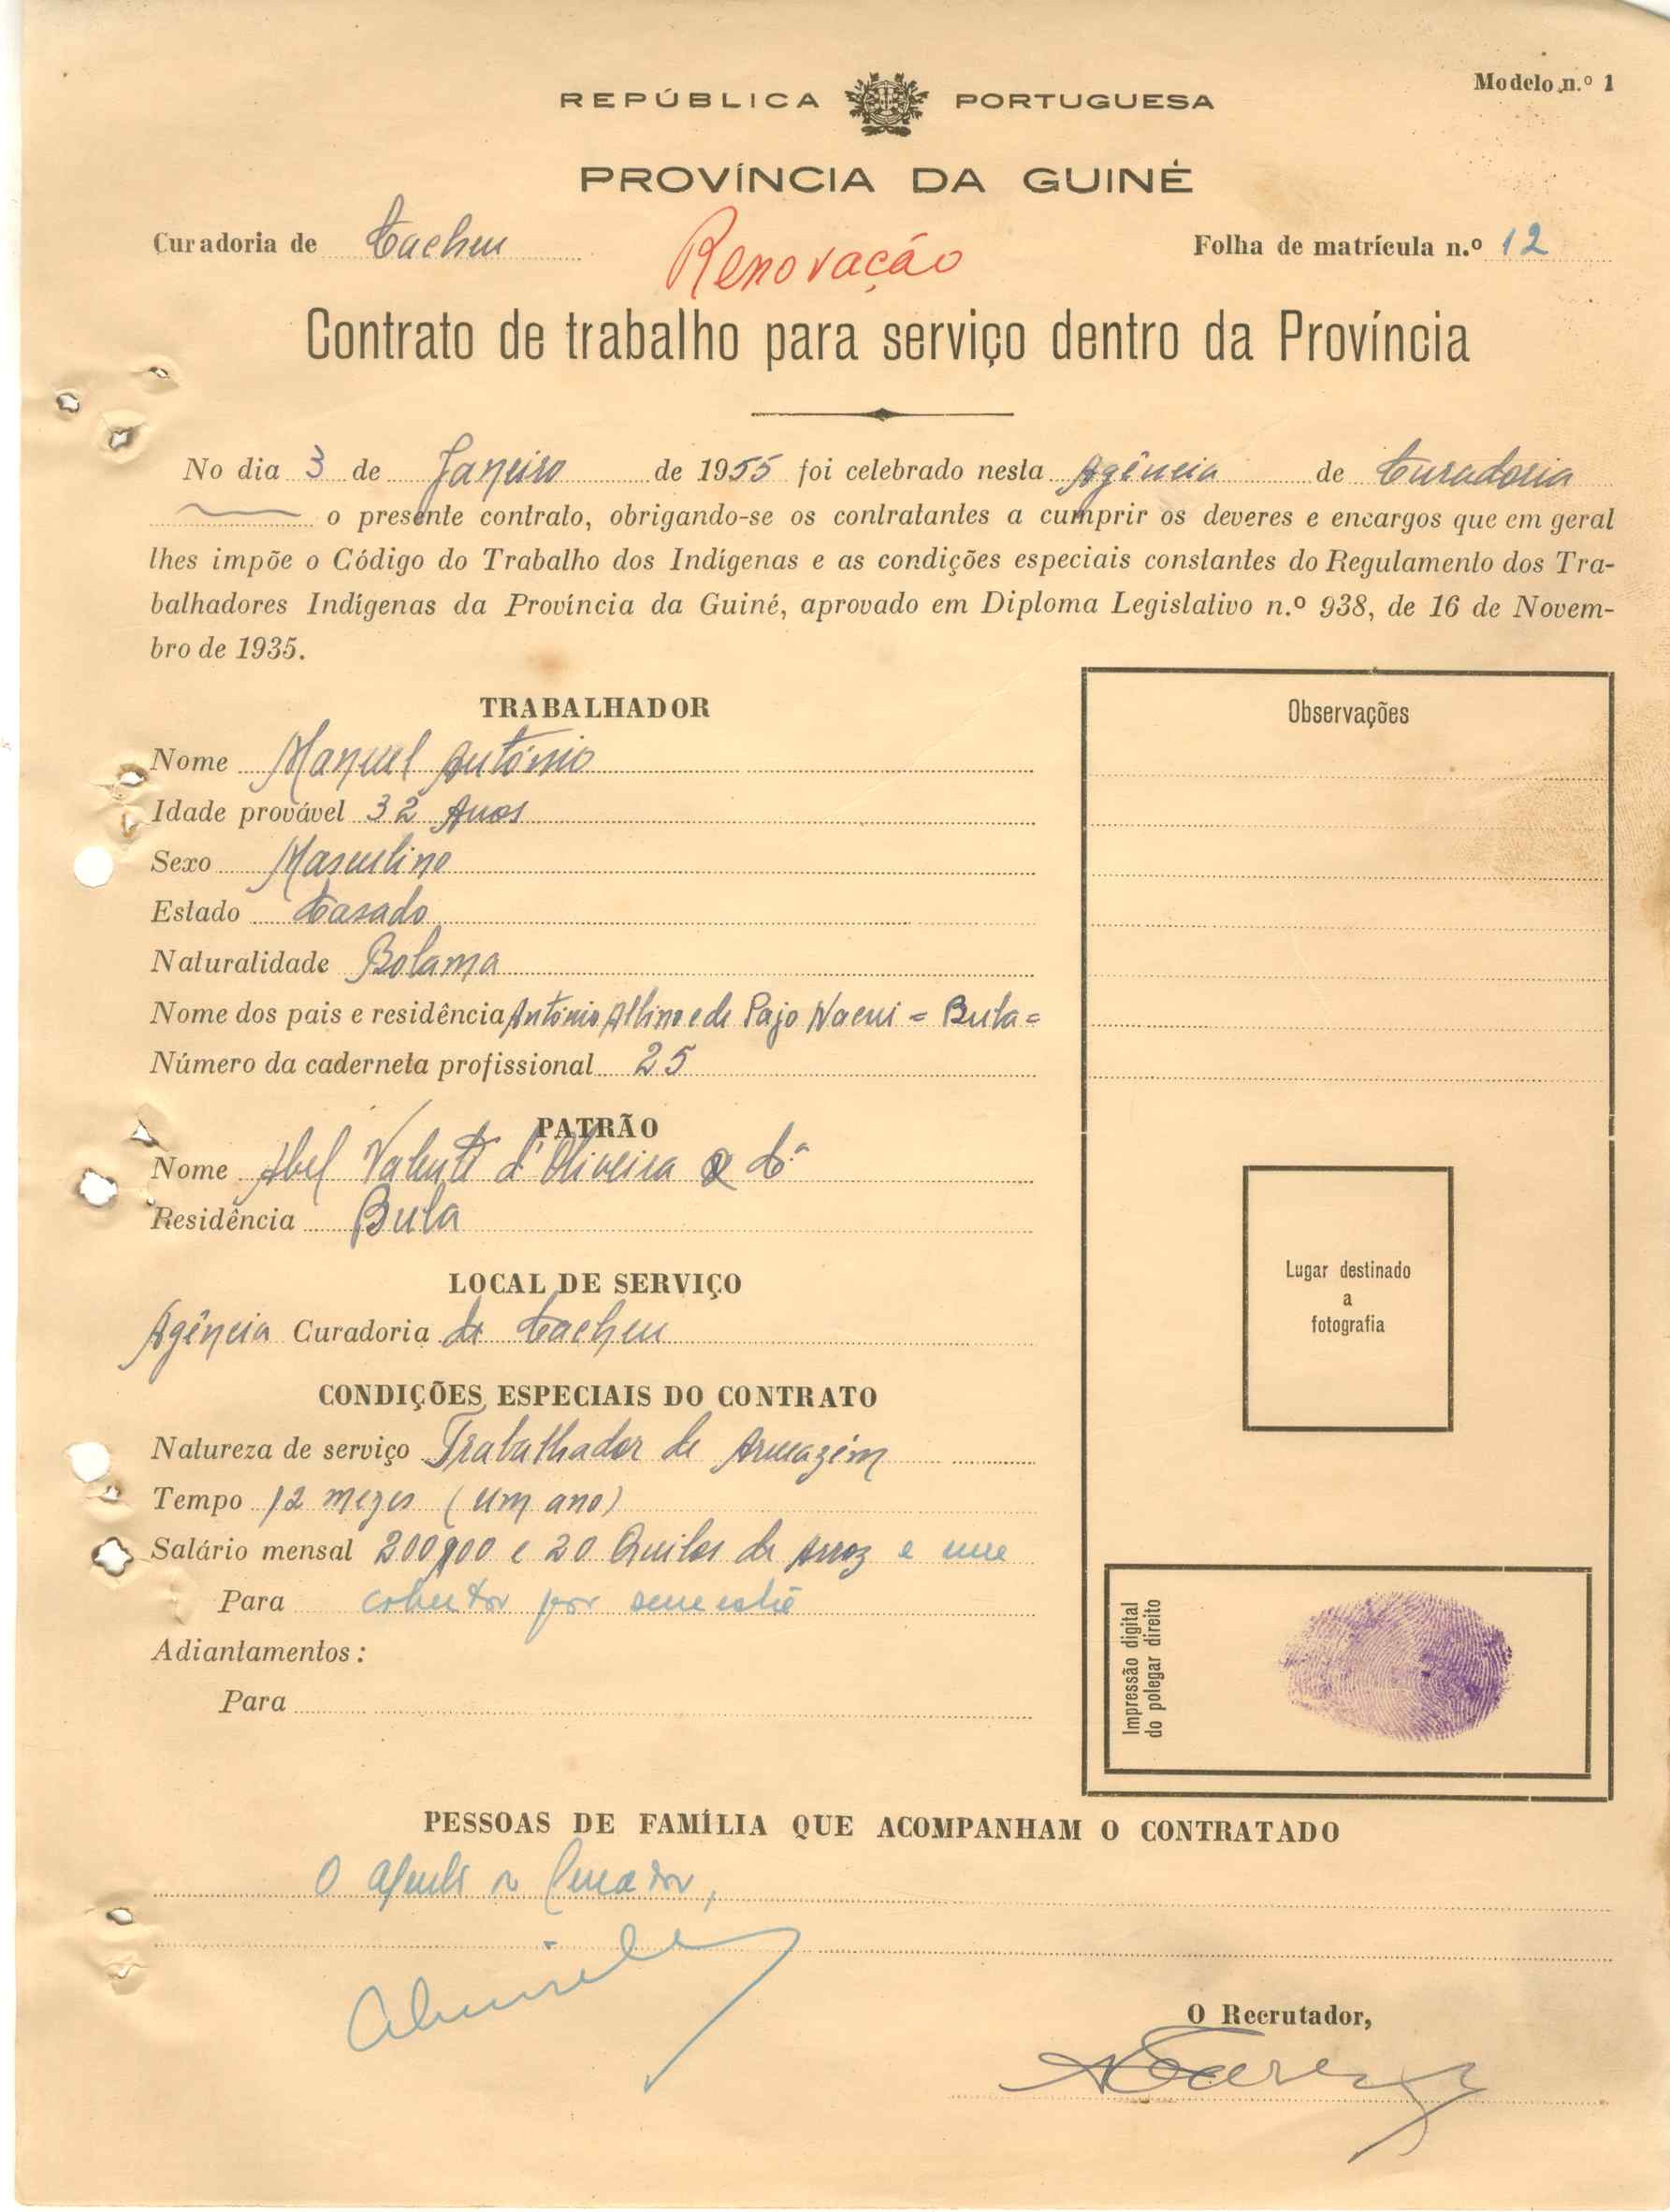 Modelo n.º 1
REPÚBLICA PORTUGUESA
PROVÍNCIA DA GUINÉ
Curadoria de Cacheu
Renovação
Folha de matrícula n.º 12
Contrato de trabalho para serviço dentro da Província
No dia 3 de Janeiro de 1955 foi celebrado nesta Agência de Curadoria
o presente contrato, obrigando-se os contratantes a cumprir os deveres e encargos que em geral
lhes impõe o Código do Trabalho dos Indígenas e as condições especiais constantes do Regulamento dos Tra-
balhadores Indígenas da Província da Guiné, aprovado em Diploma Legislativo n.º 938, de 16 de Novem-
bro de 1935.
TRABALHADOR
Nome Manuel António
Idade provável 32 Anos
Sexo Masculino
Estado Casado
Naturalidade Bolama
Nome dos pais e residência António Albino e de Pajo = Bula =
Número da caderneta profissional 25
PATRÃO
Nome Abel Valente d'Oliveira & C.ª
Residência Bula
LOCAL DE SERVIÇO
Agência Curadoria de Cacheu
CONDIÇÕES ESPECIAIS DO CONTRATO
Natureza de serviço Trabalhador de Armazém
Tempo 12 mezes (um ano)
Salário mensal 200$00 e 20 Quilos de Arroz e um
Para cobertor por semestre
Adiantamentos:
Para
Observações
Lugar destinado
a
fotografia
Impressão digital
do polegar direito
PESSOAS DE FAMÍLIA QUE ACOMPANHAM O CONTRATADO
O agente do Curador,
O Recrutador,